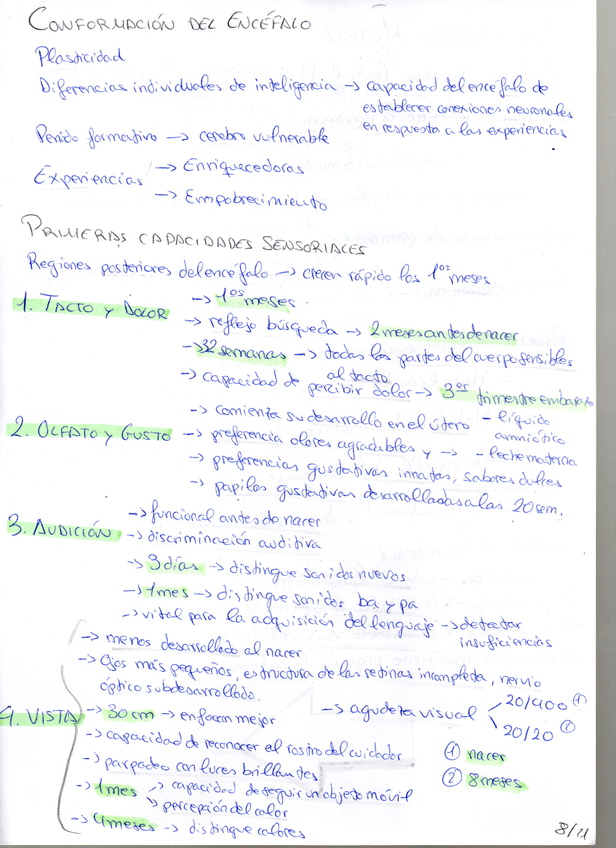 CONFORMACIÓN DEL ENCÉFALO
Plasticidad
Diferencias individuales de inteligencia -> capacidad del encéfalo de
establecer conexiones neuronales
en respuesta a las experiencias
Periodo formativo -> cerebro vulnerable
Experiencias -> Enriquecedoras
-> Empobrecimiento
PRIMERAS CAPACIDADES SENSORIALES
Regiones posteriores del encéfalo -> crecen rápido los 1os meses
1. TACTO Y DOLOR -> 1os meses.
-> reflejo búsqueda -> 2 meses antes de nacer
-> 32 semanas -> todas las partes del cuerpo sensibles
al tacto
-> capacidad de percibir dolor -> 3er trimestre embarazo
2. OLFATO Y GUSTO -> comienza su desarrollo en el útero
-> preferencia olores agradables y -> - líquido
amniótico
- leche materna
-> preferencias gustativas innatas, sabores dulces
-> papilas gustativas desarrolladas a las 20 sem.
3. AUDICIÓN -> funcional antes de nacer
-> discriminación auditiva
-> 3 días -> distingue sonidos nuevos
-> 1 mes -> distingue sonidos ba y pa
-> vital para la adquisición del lenguaje -> detectar
insuficiencias
4. VISTA -> menos desarrollado al nacer
-> Ojos más pequeños, estructura de las retinas incompleta, nervio
óptico subdesarrollado.
-> 30 cm -> enfocan mejor
-> agudeza visual 20/400 ①
20/20 ②
① nacer
② 8 meses
-> capacidad de reconocer el rostro del cuidador
-> parpadeo con luces brillantes
-> 1 mes -> capacidad de seguir un objeto móvil
-> percepción del color
-> 4 meses -> distingue colores
8/11